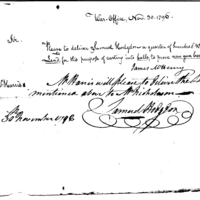 War-Office, Nov. 30. 1796.
Sir
Please to deliver Samuel Hodgdon a quarter of hundred wt
Lead, for the purpose of casting into balls, to prove
James McHenry
Mr Harris will please to deliver the
mentioned above to Mr Nicholson
Samuel Hodgdon
30 November 1796